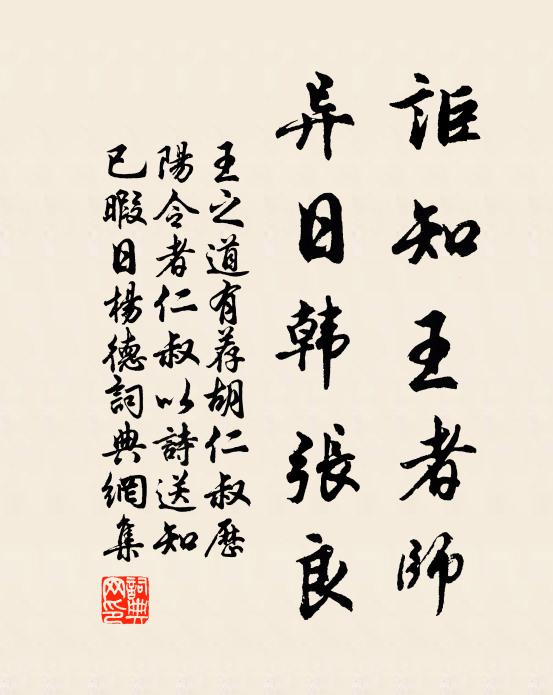 詎知王者師
异日韩張良
王之道有荐胡仁叔歷
陽令者仁叔以詩送知
已暇日楊德詞典網集
詞典网印